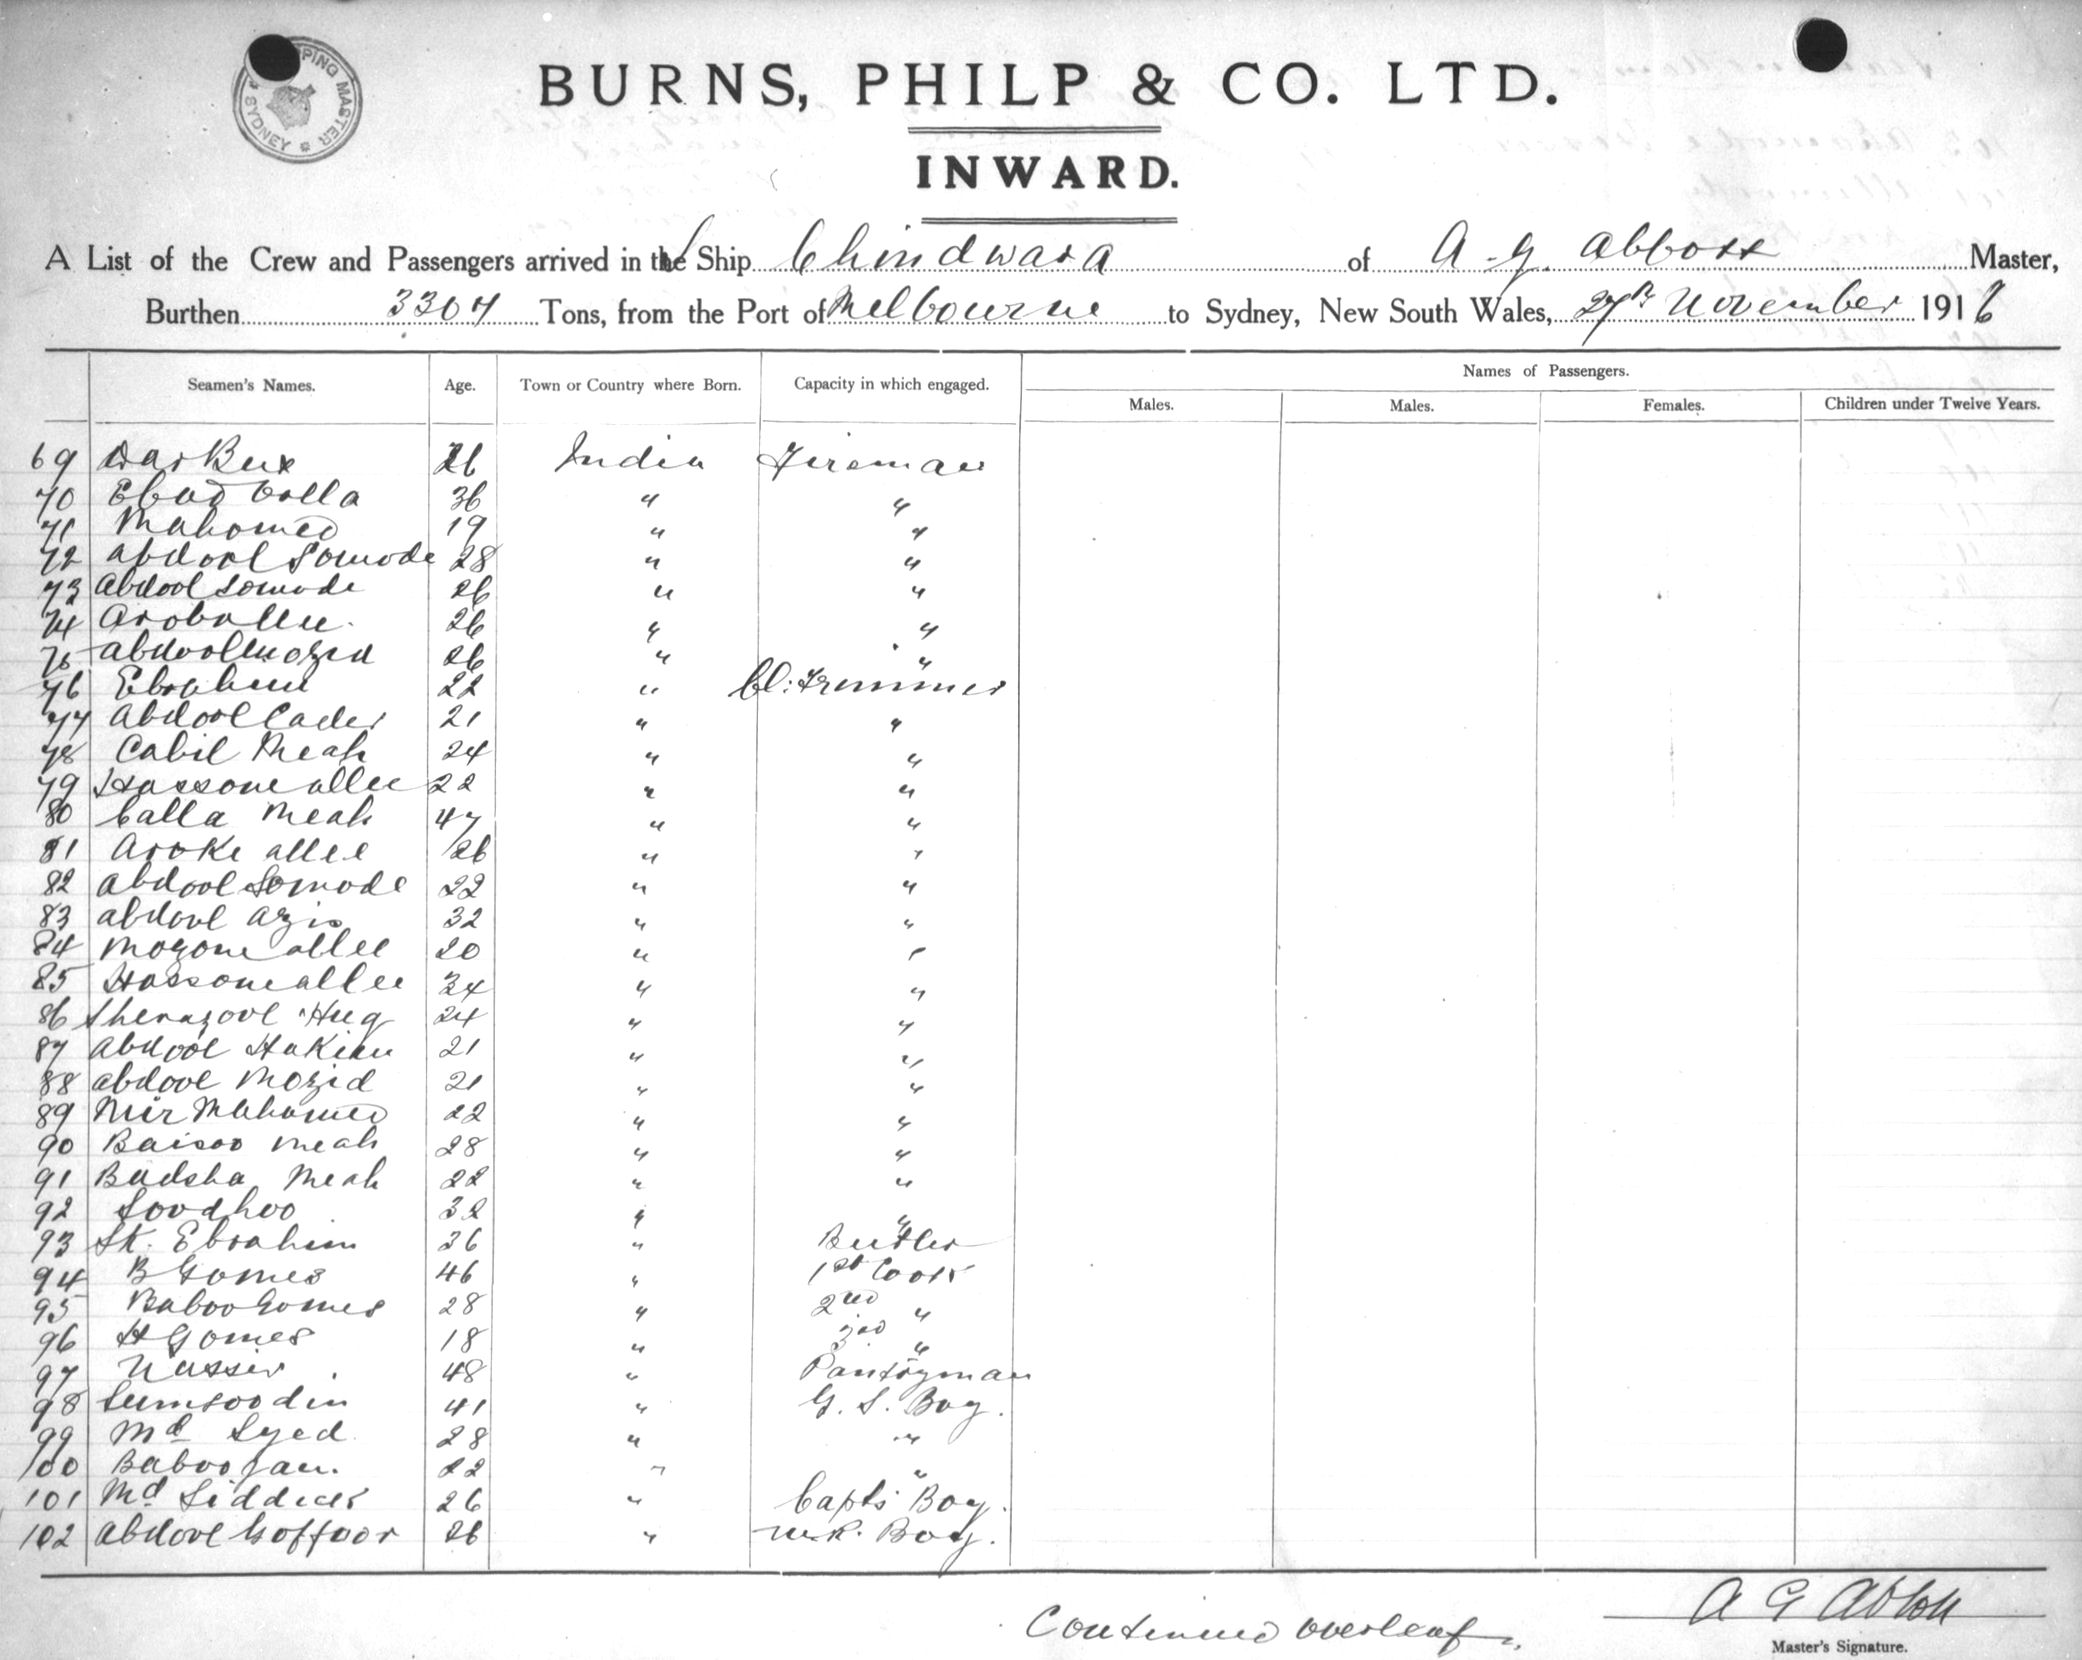 SHIPPING MASTER
* SYDNEY *
BURNS, PHILP & CO. LTD.
INWARD.
A List of the Crew and Passengers arrived in the Ship Chindwara of A. G. Abbott Master,
Burthen 3307 Tons, from the Port of Melbourne to Sydney, New South Wales, 27th November 1916
Names of Passengers.
Seamen's Names. Age. Town or Country where Born. Capacity in which engaged. Males. Males. Females. Children under Twelve Years.
69 Dar Bux 26 India Fireman
70 Ebad Oolla 36 " "
71 Mahomed 19 " "
72 Abdool Somode 28 " "
73 Abdool Somode 26 " "
74 Arob Allee 26 " "
75 Abdool Mozid 26 " "
76 Ebrahim 22 " Cl: Trimmer
77 Abdool Cader 21 " "
78 Cabil Meah 24 " "
79 Hassone Allee 22 " "
80 Calla Meah 47 " "
81 Aroke Allee 26 " "
82 Abdool Somode 22 " "
83 Abdool Azis 32 " "
84 Mozone Allee 20 " "
85 Hossone Allee 34 " "
86 Sherazool Huq 24 " "
87 Abdool Hakim 21 " "
88 Abdool Mozid 21 " "
89 Nur Mahomed 22 " "
90 Baisoo Meah 28 " "
91 Badsha Meah 22 " "
92 Soodhoo 32 " "
93 Sk. Ebrahim 36 " Butler
94 B Gomes 46 " 1st Cook
95 Baboo Gomes 28 " 2nd "
96 H Gomes 18 " 3rd "
97 Nassir 48 " Pantryman
98 Sumsoodin 41 " G. S. Boy.
99 Md Syed 28 " "
100 Baboo Jan. 22 " "
101 Md Siddick 26 " Capts Boy.
102 Abdool Goffoor 26 " Boy.
Continued overleaf
A G Abbott
Master's Signature.